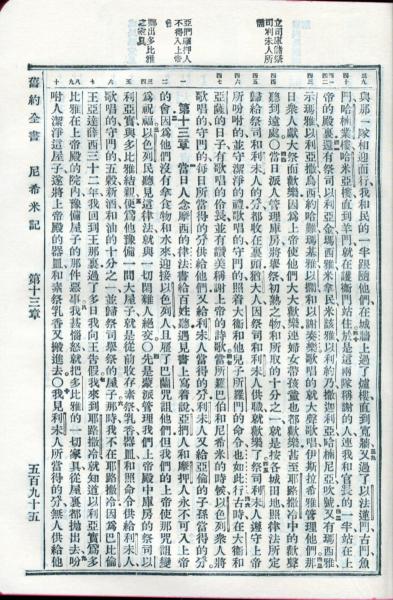 立司庫歸祭
司利未人所
備
亞捫摩押人
不得入上帝
會
攆出多比雅
之家具
與那一隊相迎而行我和民的一半跟隨他們在城牆上過了爐樓直到寬牆又過了以法蓮門古門魚
門哈楠業樓哈米亞樓直到羊門就在護衞門站住於是這兩隊稱謝的人連我和官長的一半站在上
帝的殿裏還有祭司以利亞金瑪西雅米拿民米該雅以利約乃撒迦利亞哈楠尼亞吹號又有瑪西雅
示瑪雅以利亞撒烏西約哈難瑪基雅以攔和以謝奏樂歌唱的就大聲歌唱伊斯拉希雅管理他們那
日衆人獻大祭而歡樂因爲上帝使他們大大歡樂連婦女帶孩童也都歡樂甚至耶路撒冷中的歡聲
聽到遠處○當日派人管理庫房將舉祭初熟之物和所取的十分之一就是按各城田地照律法所定
歸給祭司和利未人的分都收在裏頭猶大人因祭司和利未人供職就歡樂了祭司利未人遵守上帝
所吩咐的並守潔淨的禮歌唱的守門的照着大衞和他兒子所羅門的命令也如此行古時在大衞和
亞薩的日子有歌唱的伶長並有讚美稱謝上帝的詩歌當所羅巴伯和尼希米的時候以色列衆人將
歌唱的守門的每日所當得的分供給他們又給利未人當得的分利未人又給亞倫的子孫當得的分
第十三章 當日人念摩西的律法書給百姓聽遇見書上寫着說亞捫人和摩押人永不可入上帝
的會因爲他們沒有拿食物和水來迎接以色列人且雇了巴蘭咒詛他們但我們的上帝使那咒詛變
爲祝福以色列民聽見這律法就與一切閒雜人絕交○先是蒙派管理我們上帝殿中庫房的祭司以
利亞實與多比雅結親便爲他豫備一間大屋子就是從前收存素祭乳香器皿和照命令供給利未人
歌唱的守門的五穀新酒和油的十分之一並歸祭司舉祭的屋子那時我不在耶路撒冷因爲巴比倫
王亞達薛西三十二年我回到王那裏過了多日我向王告假我來到耶路撒冷就知道以利亞實爲多
比雅在上帝殿的院內豫備屋子的那件惡事我甚惱怒就把多比雅的一切家具從屋裏都拋出去吩
咐人潔淨這屋子遂將上帝殿的器皿和素祭乳香又搬進去○我見利未人所當得的分無人供給他
舊約全書 尼希米記 第十三章 五百九十五